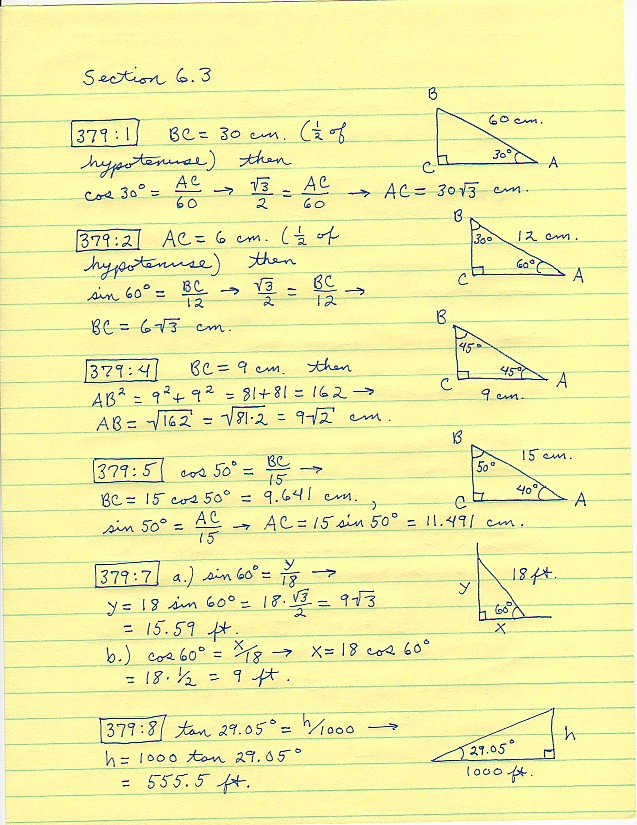 Section 6.3
379:1 BC = 30 cm. (½ of
hypotenuse) then
cos 30° = AC/60 → √3/2 = AC/60 → AC = 30√3 cm.
B
60 cm.
C 30° A
379:2 AC = 6 cm. (½ of
hypotenuse) then
sin 60° = BC/12 → √3/2 = BC/12 →
BC = 6√3 cm.
B
30° 12 cm.
C 60° A
379:4 BC = 9 cm. then
AB² = 9² + 9² = 81 + 81 = 162 →
AB = √162 = √81·2 = 9√2 cm.
B
45°
C 45° A
9 cm.
379:5 cos 50° = BC/15 →
BC = 15 cos 50° = 9.641 cm.,
sin 50° = AC/15 → AC = 15 sin 50° = 11.491 cm.
B
50° 15 cm.
C 40° A
379:7 a.) sin 60° = y/18 →
y = 18 sin 60° = 18·√3/2 = 9√3
= 15.59 ft.
b.) cos 60° = x/18 → x = 18 cos 60°
= 18·½ = 9 ft.
y 18 ft.
60°
x
379:8 tan 29.05° = h/1000 →
h = 1000 tan 29.05°
= 555.5 ft.
h
29.05°
1000 ft.